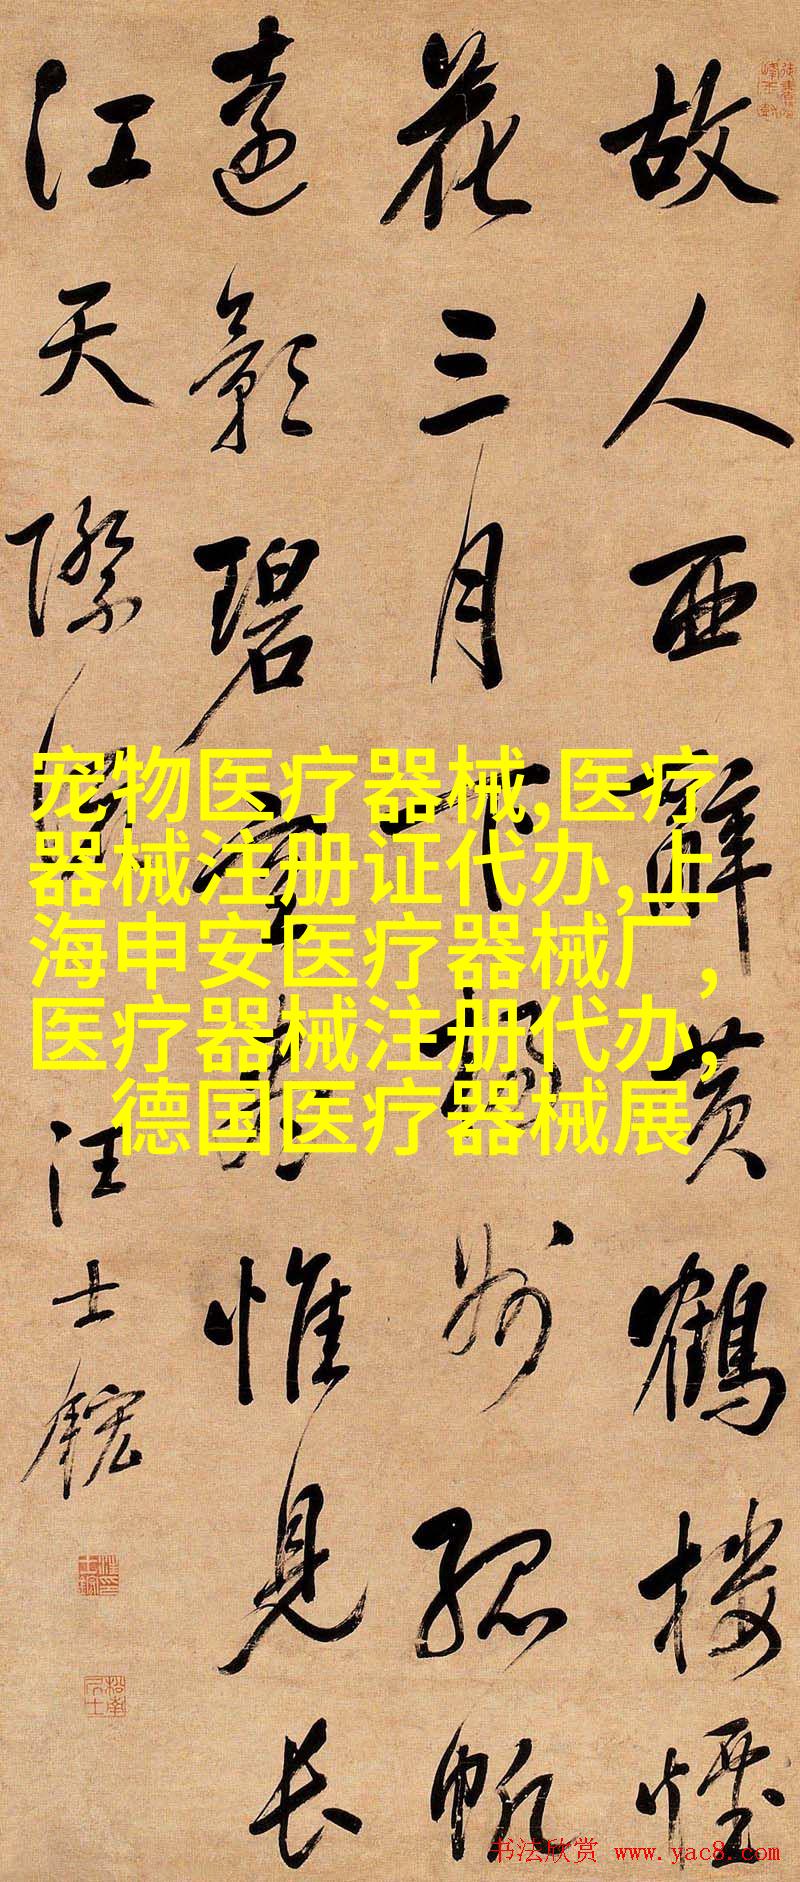 故人西辭黄鶴樓煙
花三月下揚州孤帆
遠影碧空盡惟見長
江天際流
汪士鋐
宠物医疗器械,医疗
器械注册证代办,上
海申安医疗器械厂,
医疗器械注册代办,
德国医疗器械展
书法欣赏 www.yac8.com